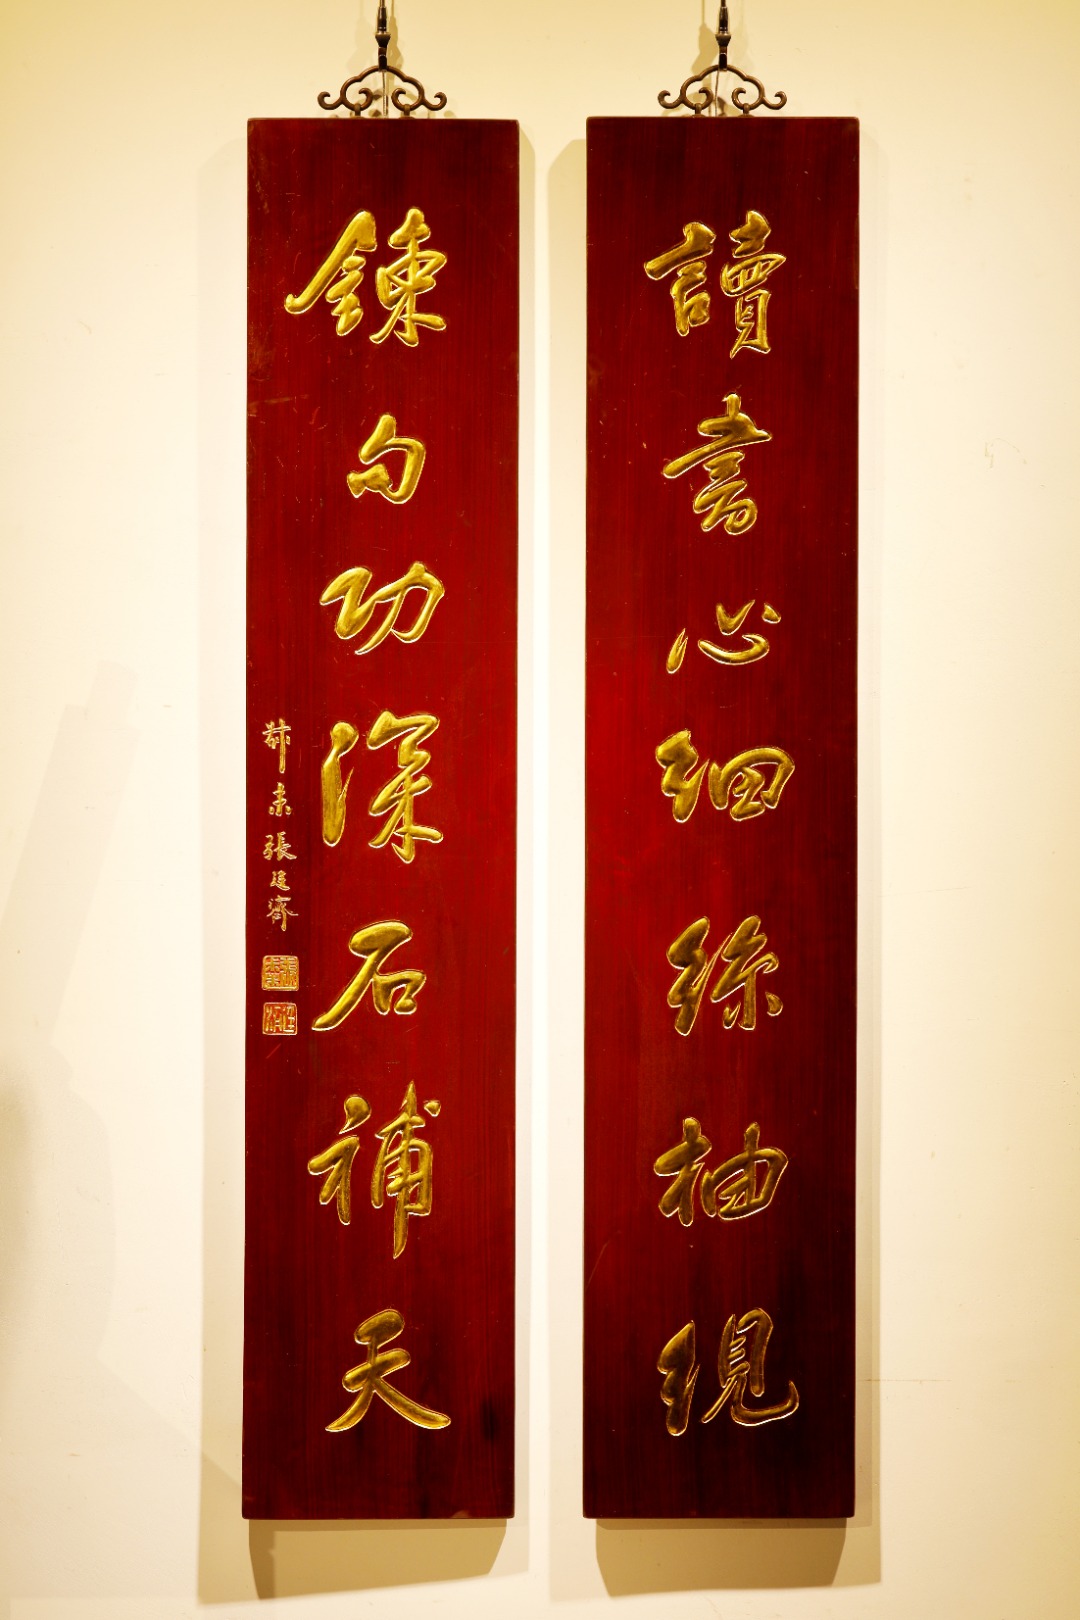 讀書心細絲抽繭
鍊句功深石補天
叔未張廷濟